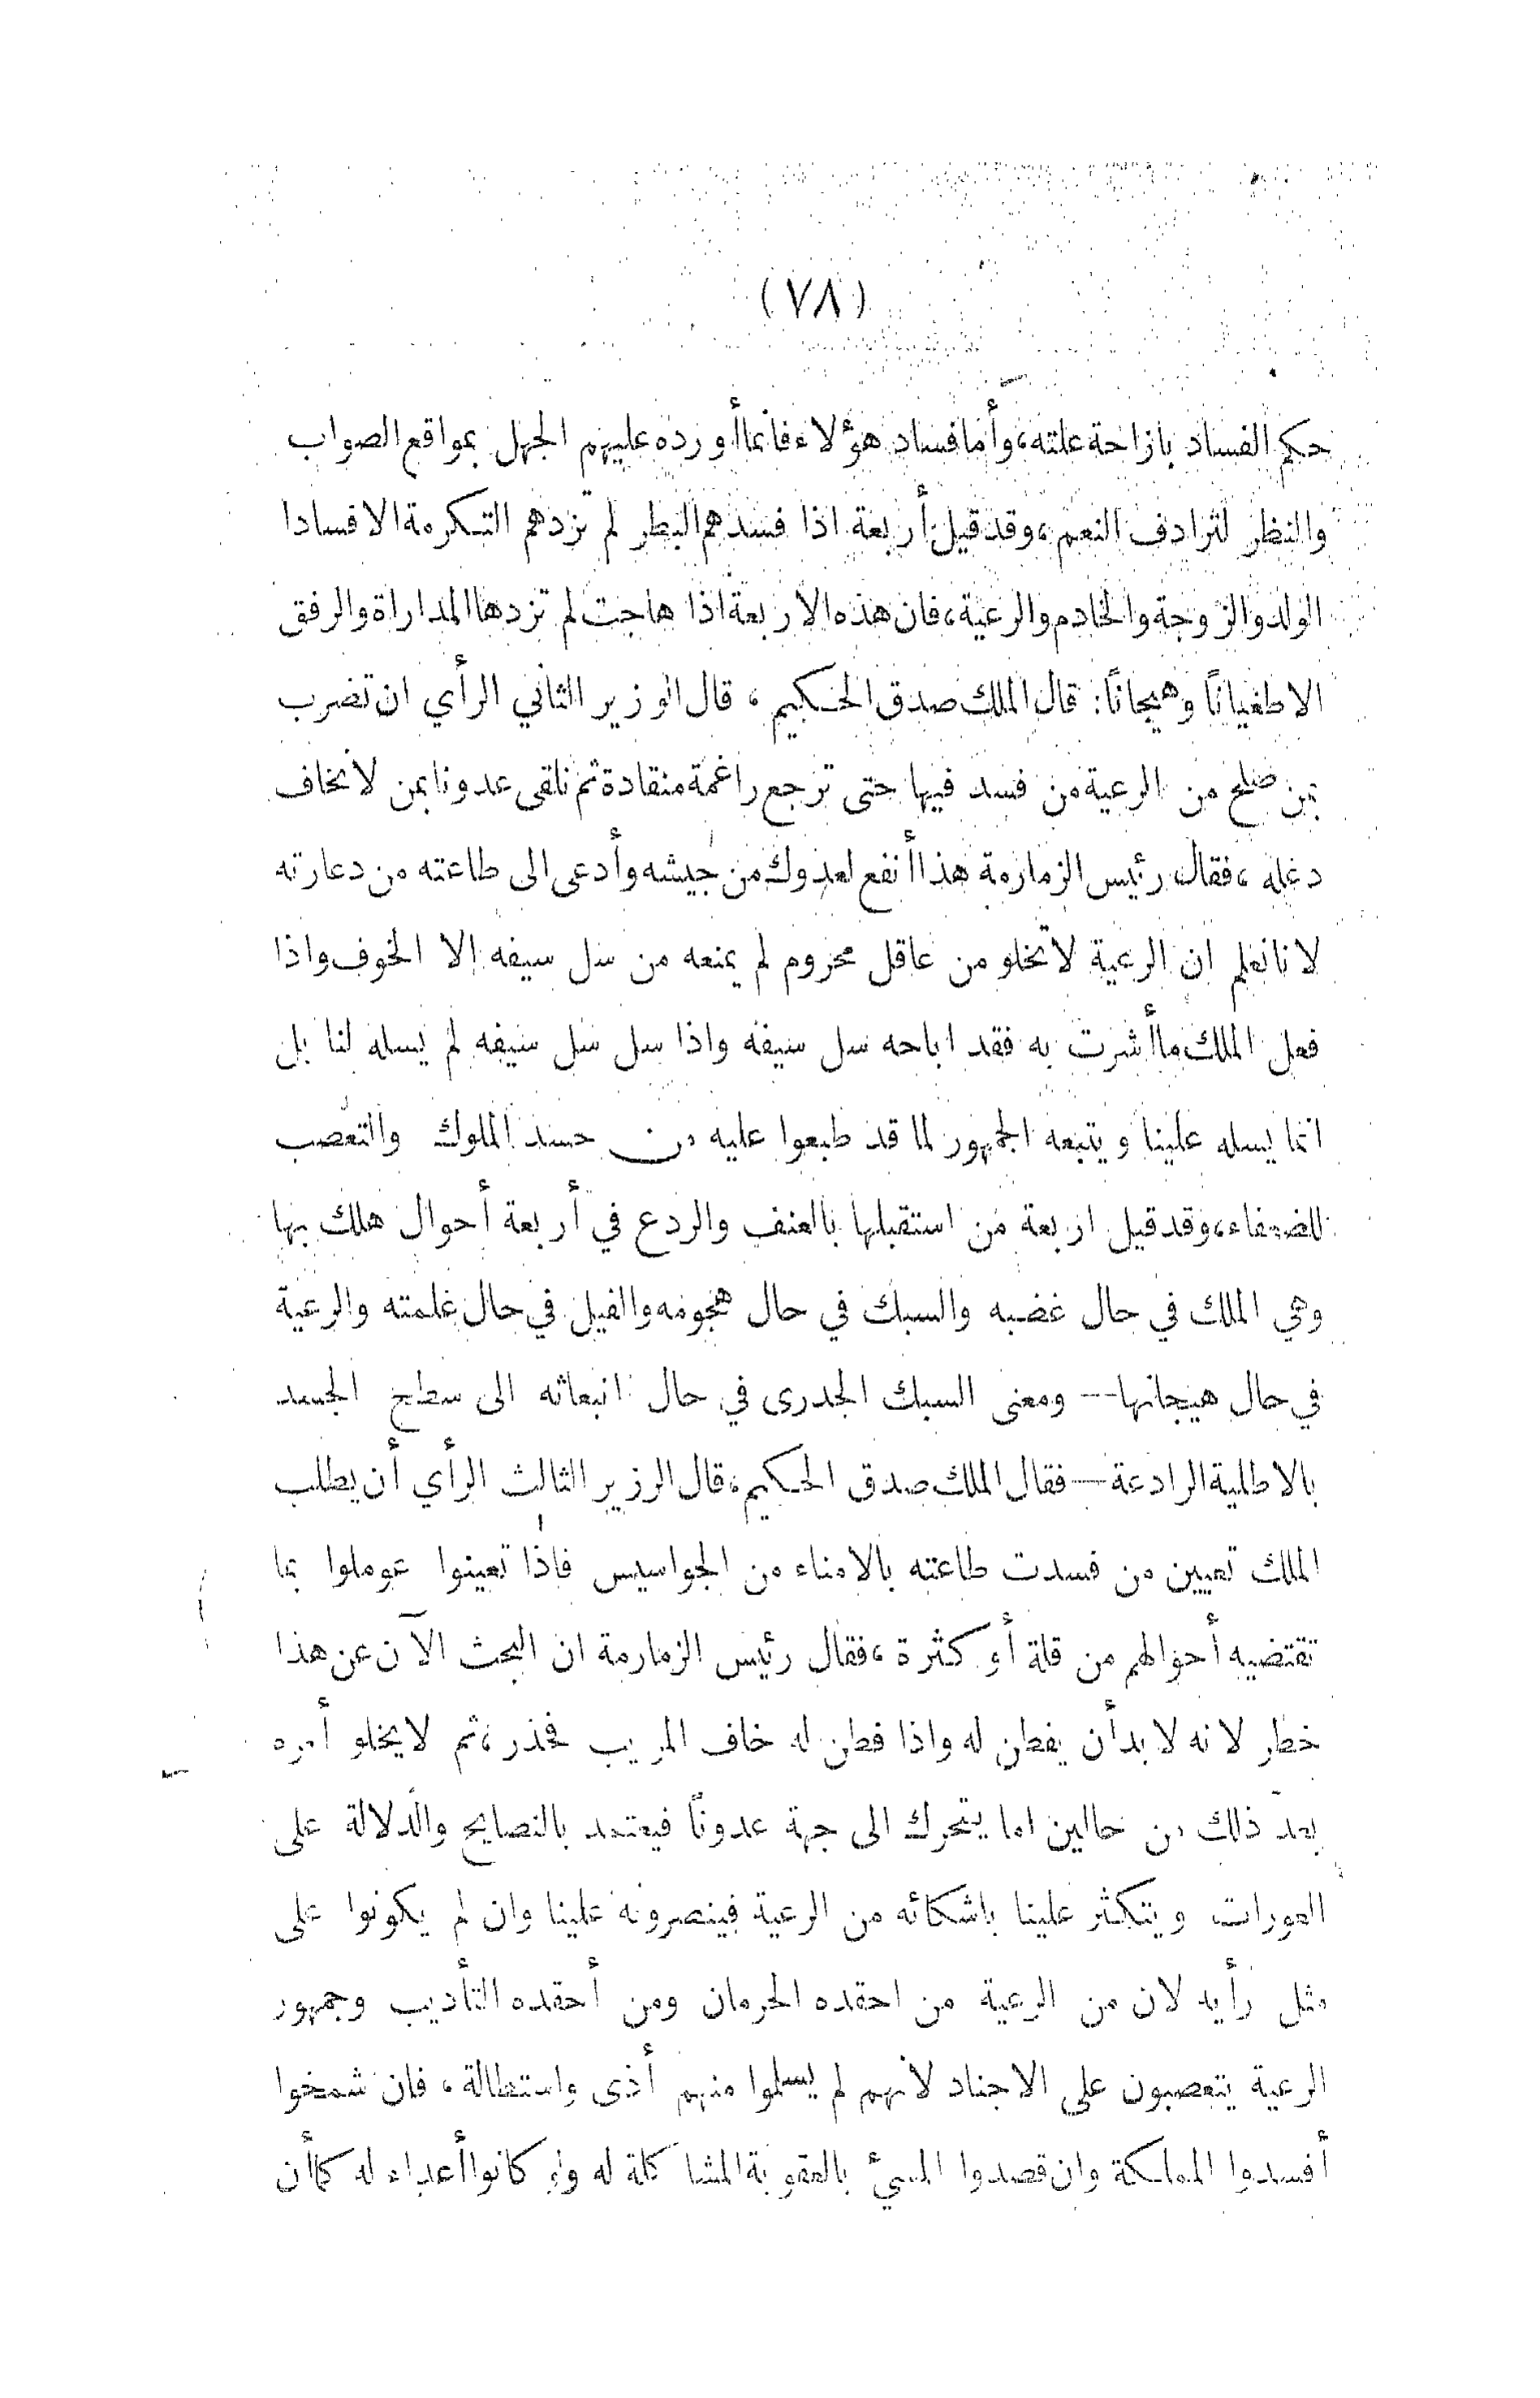 (٧٨)
حكم الفساد بازاحة علته، وأما فساد هؤلاء فانما أورده عليهم الجهل بمواقع الصواب
والنظر لترادف النعم، وقد قيل أربعة اذا فسدهم البطر لم تزدهم التكرمة الا فسادا
الولد والزوجة والخادم والرعية، فان هذه الاربعة اذا هاجت لم تزدها المداراة والرفق
الا طغيانًا وهيجانًا: قال الملك صدق الحكيم، قال الوزير الثاني الرأي ان تضرب
بمن صلح من الرعية من فسد فيها حتى ترجع راغمة منقادة ثم نلقى عدونا بمن لا نخاف
دغله، فقال رئيس الزمازمة هذا أنفع لعدوك من جيشه وأدعى الى طاعته من دعارته
لانا نعلم ان الرعية لا تخلو من عاقل محروم لم يمنعه من سل سيفه الا الخوف واذا
فعل الملك ما أشرت به فقد اباحه سل سيفه واذا سل سل سيفه لم يسله لنا بل
انما يسله علينا ويتبعه الجمهور لما قد طبعوا عليه من حسد الملوك والتعصب
للضعفاء، وقد قيل اربعة من استقبلها بالعنف والردع في أربعة أحوال هلك بها
وهي الملك في حال غضبه والسبك في حال هجومه والفيل في حال غلمته والرعية
في حال هيجانها — ومعنى السبك الجدرى في حال انبعاثه الى سطح الجسد
بالاطلية الرادعة — فقال الملك صدق الحكيم، قال الرزير الثالث الرأي أن يطلب
الملك تعيين من فسدت طاعته بالامناء من الجواسيس فاذا تعينوا عوملوا بما
تقتضيه أحوالهم من قلة أو كثرة، فقال رئيس الزمارمة ان البحث الآن عن هذا
خطر لانه لا بد أن يفطن له واذا فطن له خاف المريب فحذر، ثم لا يخلو أمره
بعد ذلك من حالين اما يتحرك الى جهة عدونا فيعتمد بالنصايح والدلالة على
العورات ويتكثر علينا باشكائه من الرعية فينصرونه علينا وان لم يكونوا على
مثل رأيه لان من الرعية من احقده الحرمان ومن أحقده التأديب وجمهور
الرعية يتعصبون على الاجناد لانهم لم يسلموا منهم أذى واستطالة، فان شمخوا
أفسدوا المملكة وان قصدوا المسيء بالعقوبة المشاكلة له ولو كانوا أعداء له كما أن